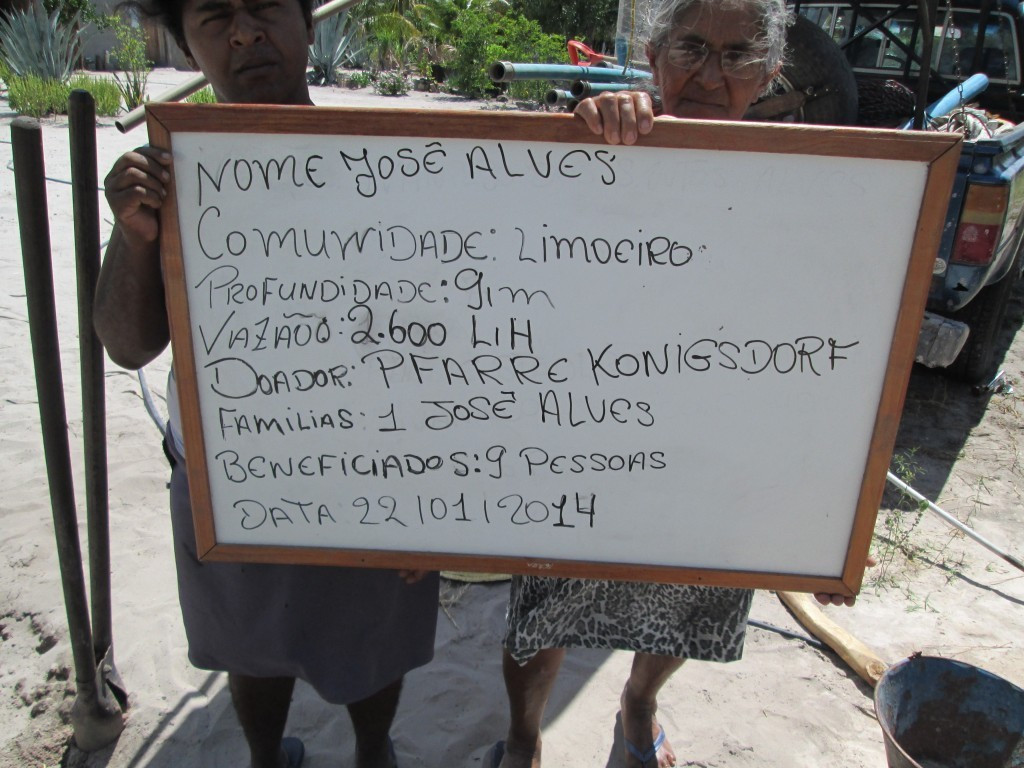 NOME JOSÊ ALVES
COMUNIDADE: LIMOEIRO
PROFUNDIDADE: 91m
VAZÃO: 2.600 L/H
DOADOR: PFARRE KONIGSDORF
FAMILIAS: 1 JOSÊ ALVES
BENEFICIADOS: 9 PESSOAS
DATA 22/01/2014